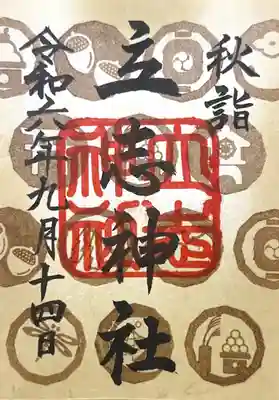 秋詣
立志神社
令和六年九月十四日
立志神社